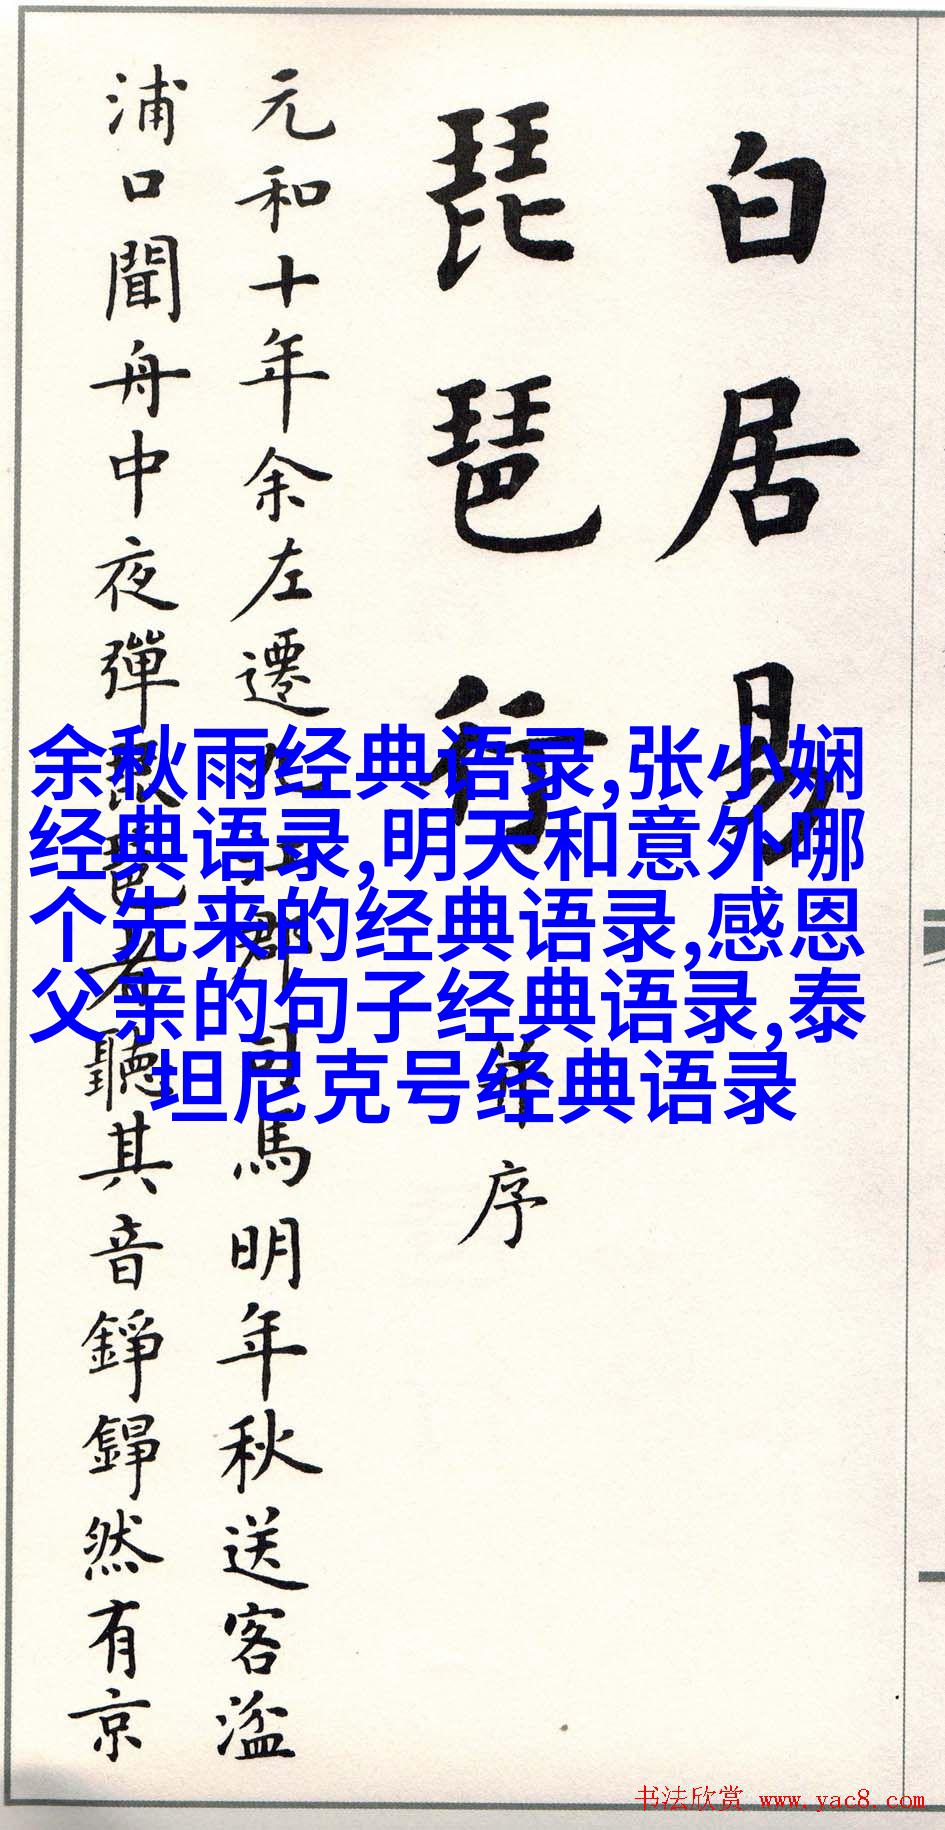 白居易
琵琶行并序
元和十年余左遷九江郡司馬明年秋送客湓
浦口聞舟中夜彈琵琶者聽其音錚錚然有京
余秋雨经典语录,张小娴
经典语录,明天和意外哪
个先来的经典语录,感恩
父亲的句子经典语录,泰
坦尼克号经典语录
书法欣赏 www.yac8.com